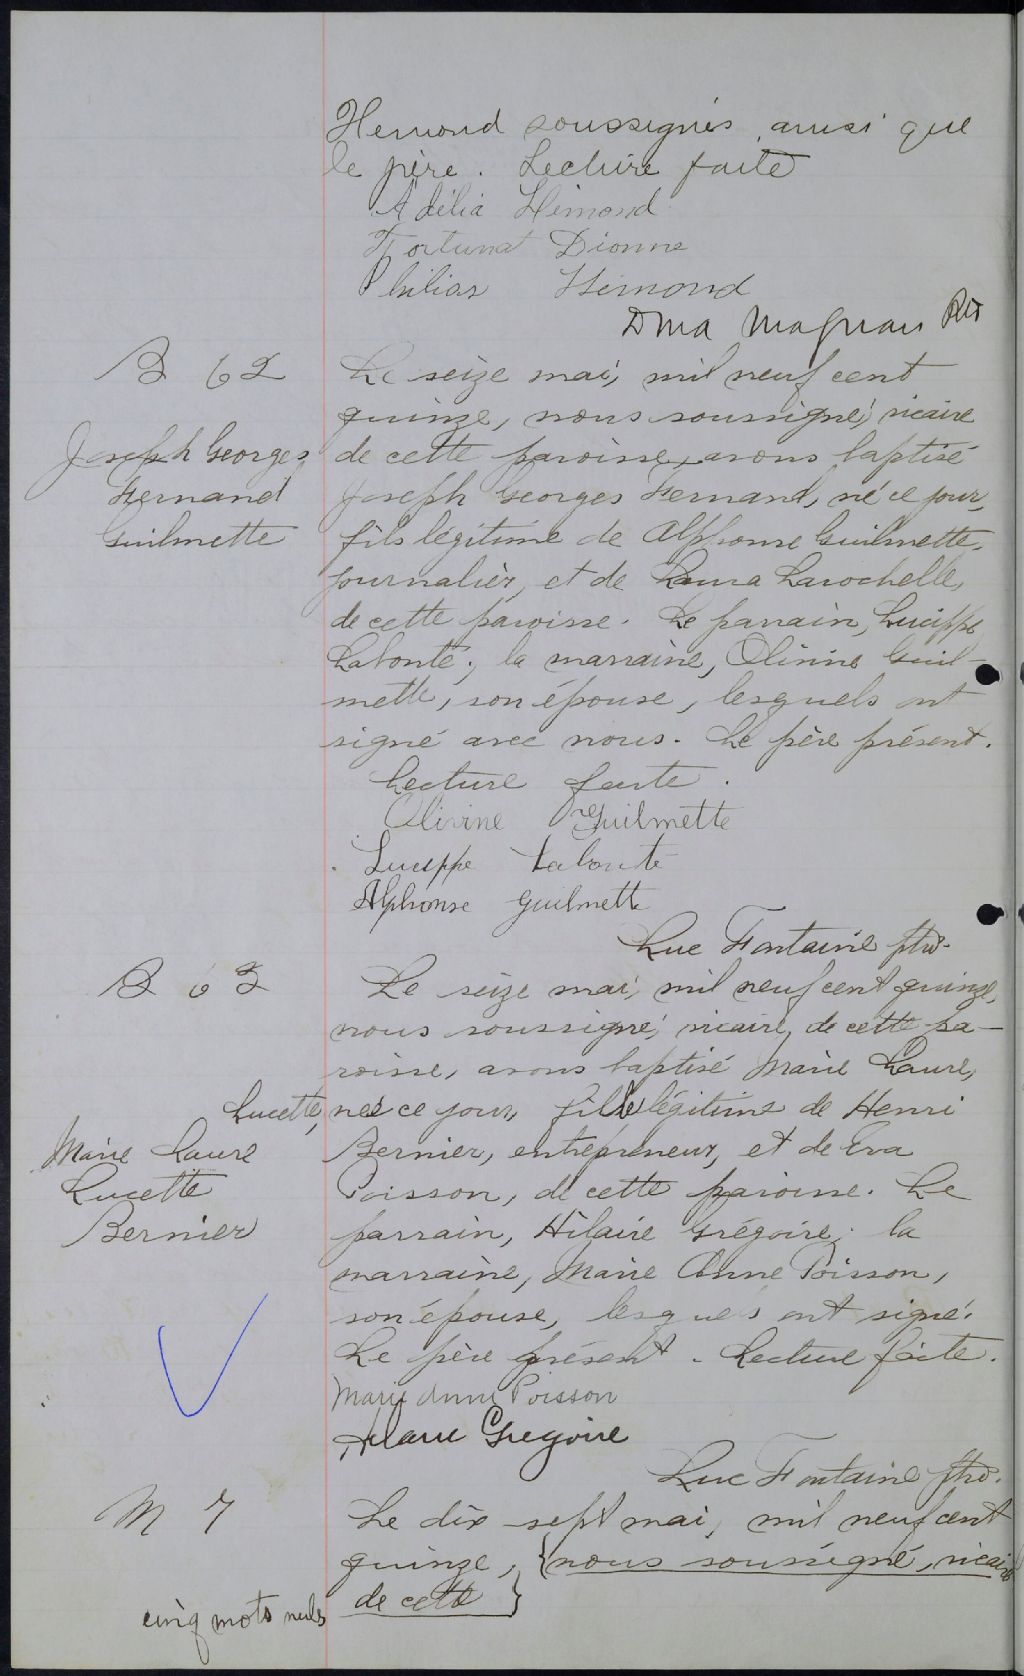 Hemond soussignés ainsi que
le père. Lecture faite
Adélia Hémond
Fortunat Dionne
Philias Hémond
Dma Magnan Ptr
B 62
Joseph Georges
Fernand
Guilmette
Le seize mai, mil neuf cent
quinze, nous soussigné, vicaire
de cette paroisse, avons baptisé
Joseph Georges Fernand, né ce jour,
fils légitime de Alphonse Guilmette,
journalier, et de Laura Larochelle,
de cette paroisse. Le parrain, Lucippe
Labonté; la marraine, Olivine Guil-
mette, son épouse, lesquels ont
signé avec nous. Le père présent.
Lecture faite.
Olivine Guilmette
Lucippe Labonté
Alphonse Guilmette
Luc Fontaine ptre.
B 63
Marie Laure
Lucette
Bernier
Le seize mai, mil neuf cent quinze,
nous soussigné, vicaire, de cette pa-
roisse, avons baptisé Marie Laure,
Lucette, née ce jour, fille légitime de Henri
Bernier, entrepreneur, et de Eva
Poisson, de cette paroisse. Le
parrain, Hilaire Grégoire; la
marraine, Marie Anne Poisson,
son épouse, lesquels ont signé.
Le père présent. Lecture faite.
Marie Anne Poisson
Hilaire Gregoire
Luc Fontaine ptre.
M 7
Le dix sept mai, mil neuf cent
quinze, {nous soussigné, vicaire
de cette}
cinq mots nuls